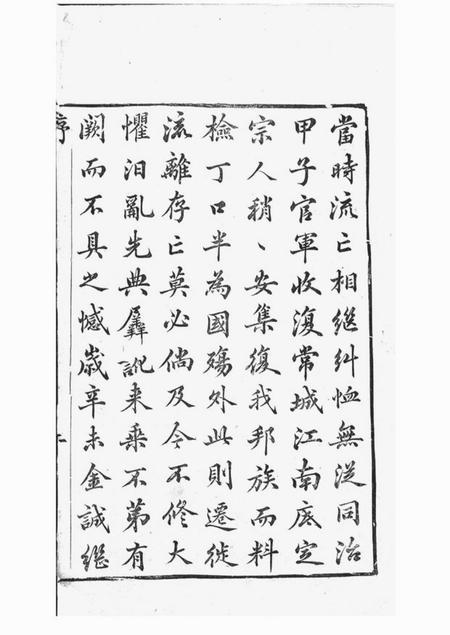 當時流亡相繼糾恤無從同治
甲子官軍收復常城江南底定
宗人稍、安集復我邦族而料
檢丁口半為國殤外此則遷徙
流離存亡莫必倘及今不修大
懼汨亂先典羼訛来乘不第有
闕而不具之憾歲辛未金誠繼
序